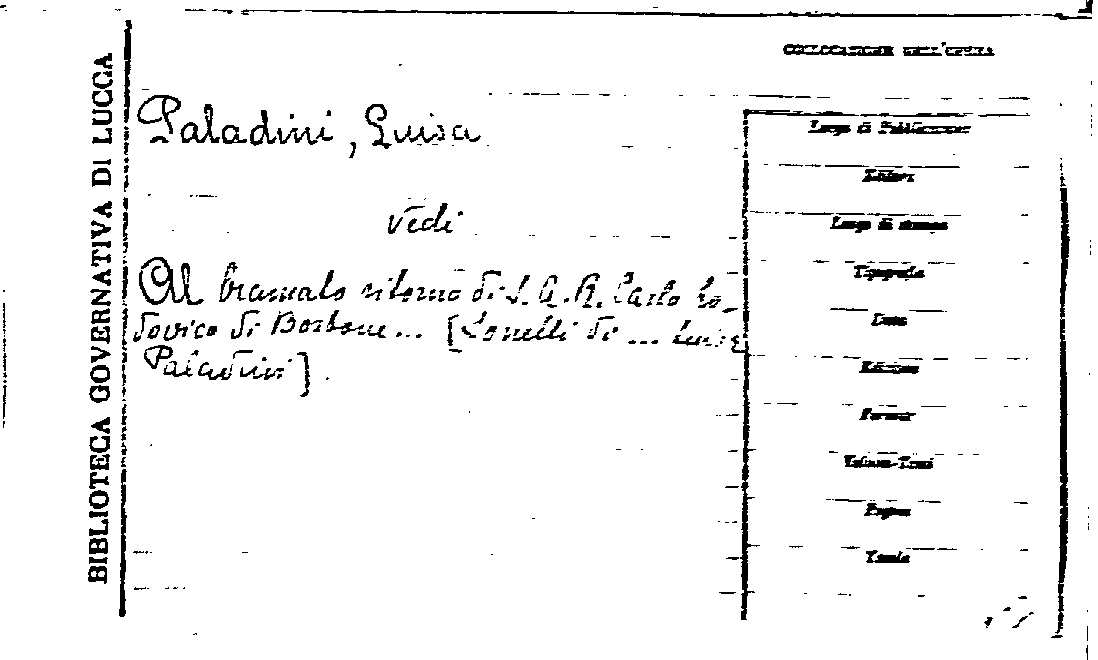 BIBLIOTECA GOVERNATIVA DI LUCCA
COLLOCAZIONE DELL'OPERA
Paladini, Luisa
vedi
Al bramato ritorno di S. A. R. Carlo Lo-
dovico di Borbone... [Sonetti di ... Luisa
Paladini].
Luogo di Pubblicazione
Editore
Luogo di stampa
Tipografia
Data
Edizione
Formato
Volumi-Tomi
Pagine
Tavole